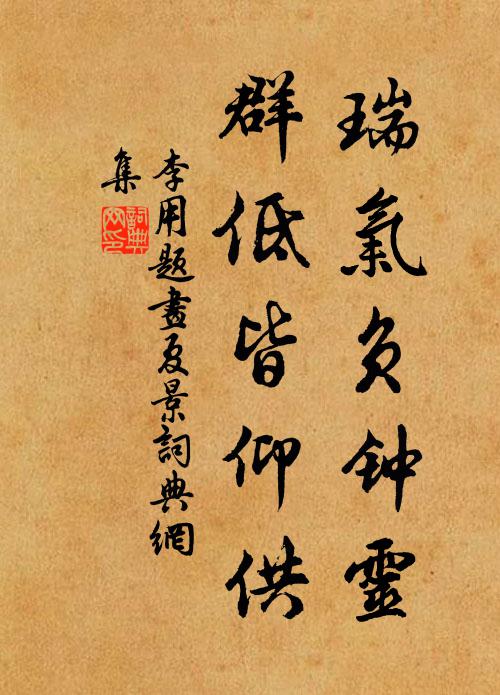 瑞氣負钟靈
群低皆仰供
李用題畫夏景詞典網
集
詞典網印